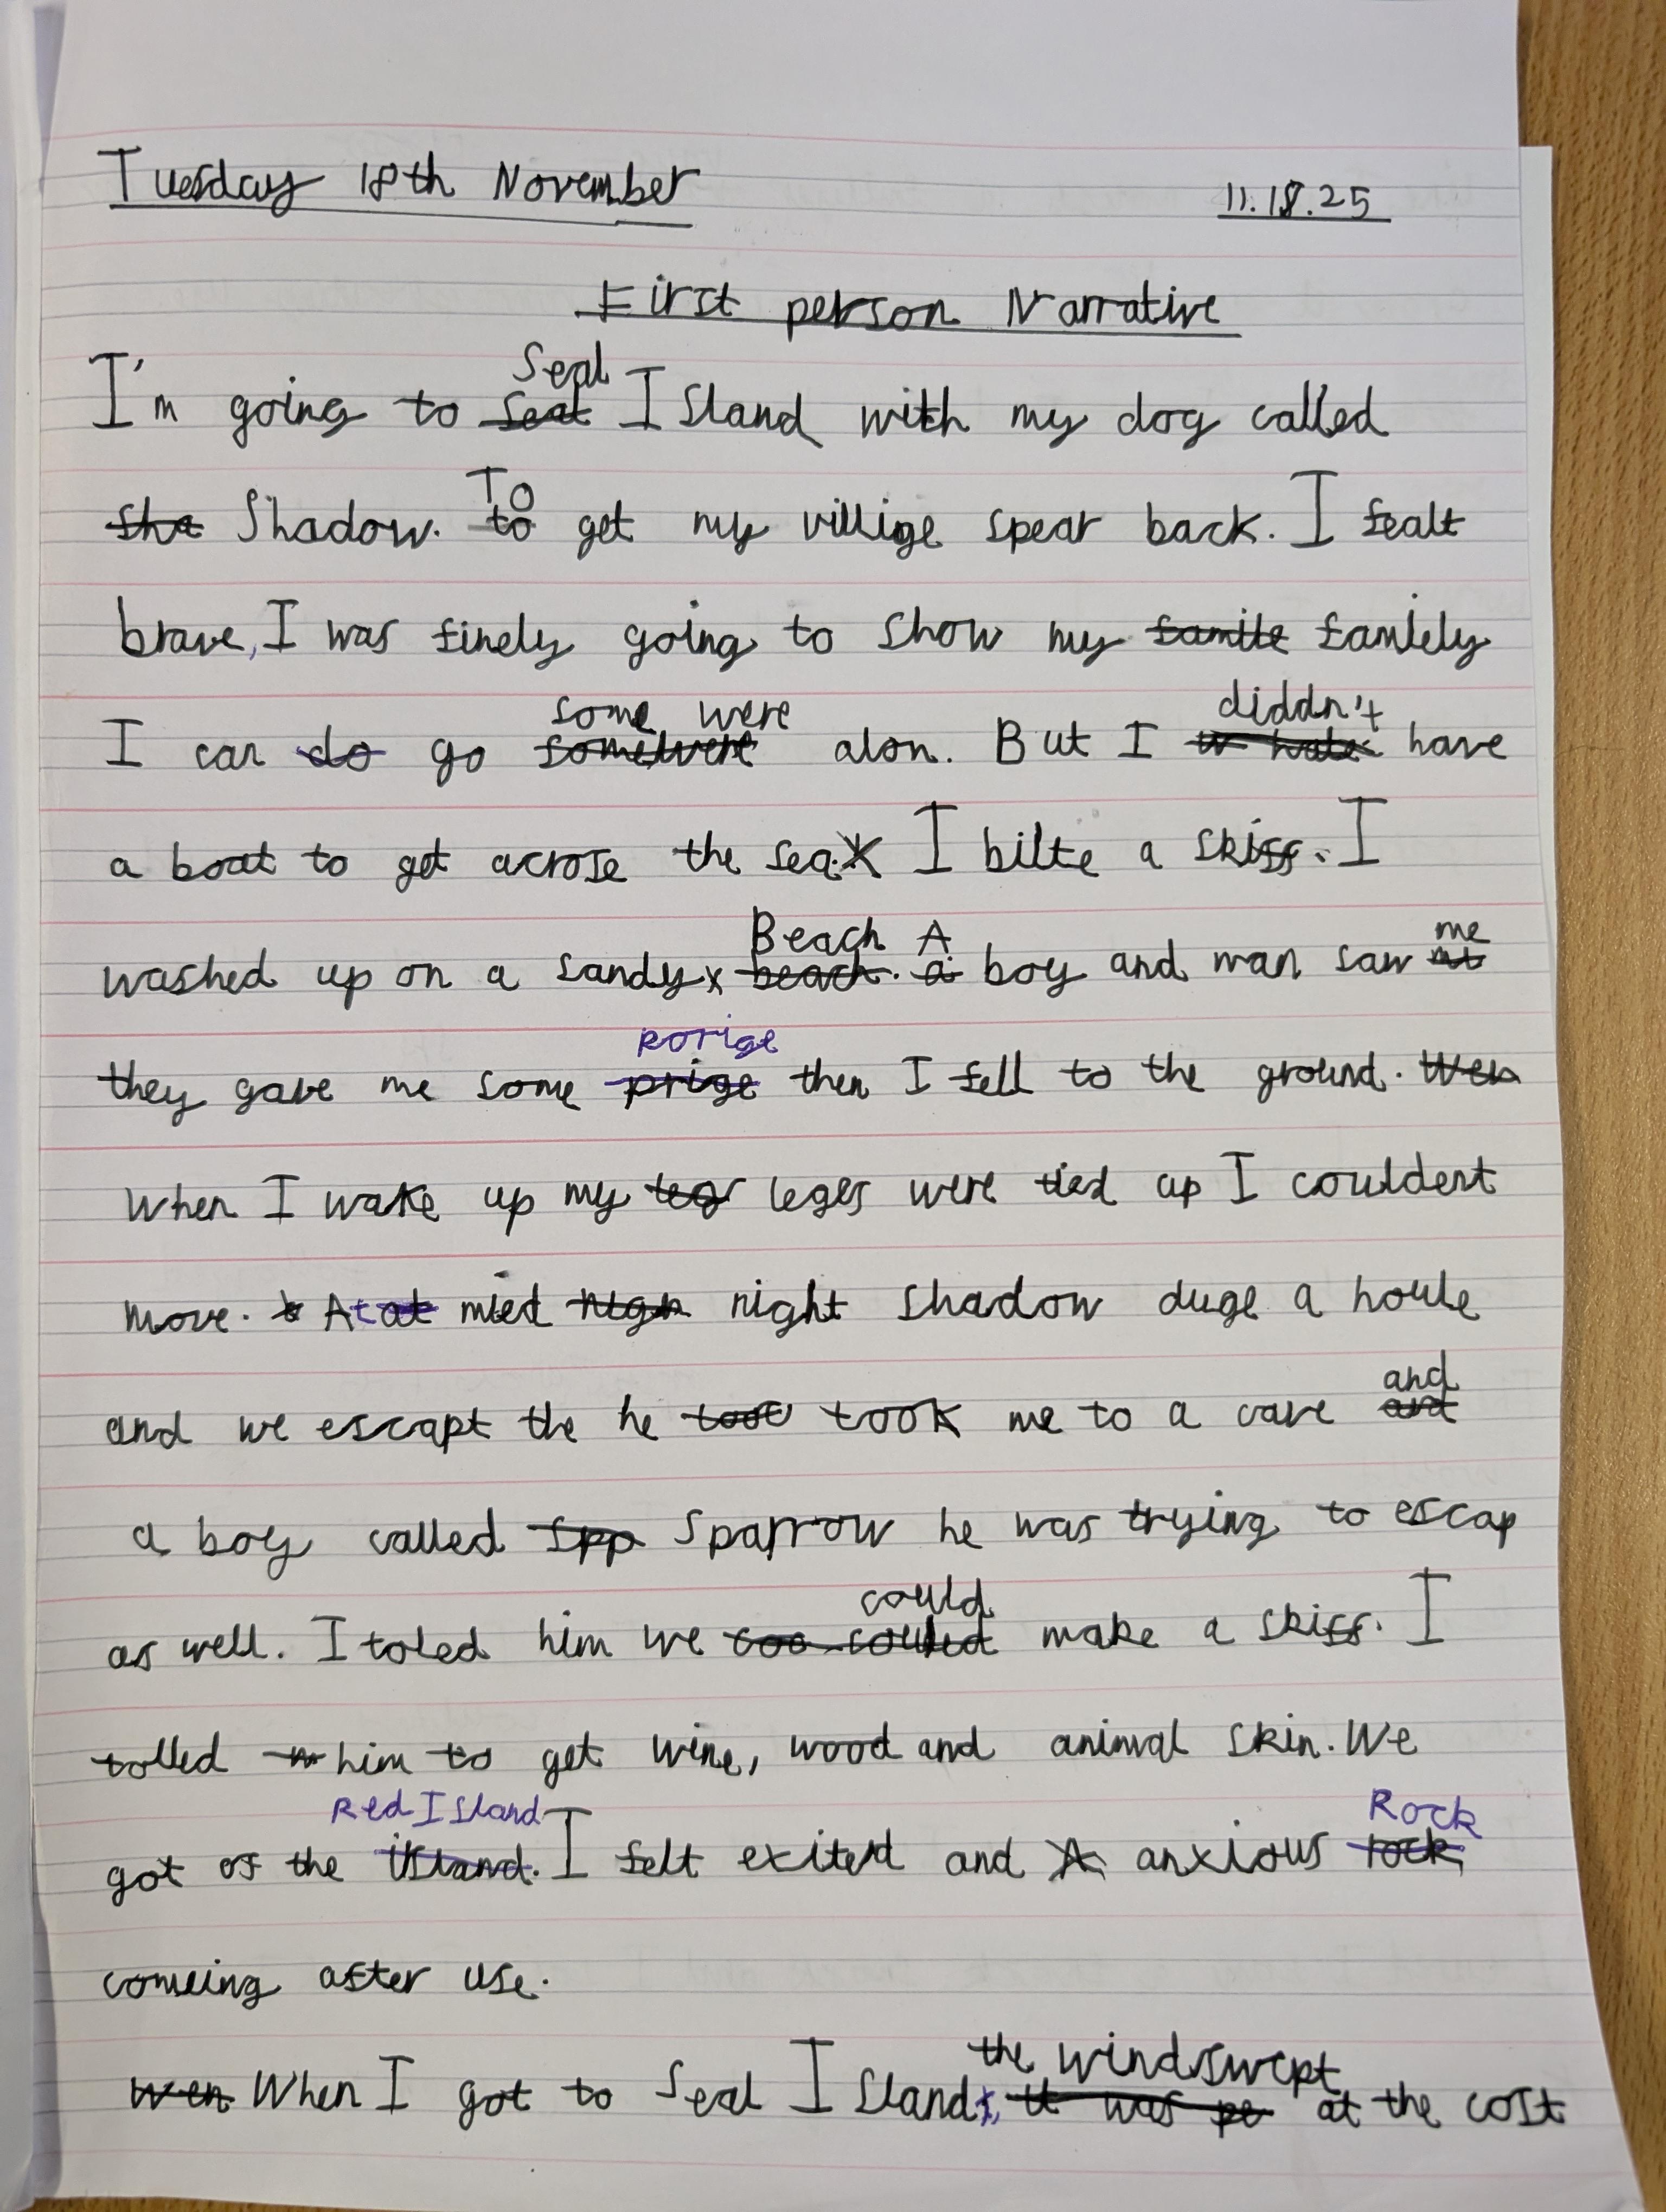 Tuesday 18th November 11.18.25
First person Narrative
I'm going to Seal Island with my dog called
Shadow. To get my villige spear back. I fealt
brave, I was finely going to show my famlely
I can go some were alon. But I diddn't have
a boat to get acrose the sea. I bilte a skiff. I
washed up on a sandy Beach A boy and man saw me
they gave me some porige then I fell to the ground.
When I wake up my leges were tied up I couldent
move. At mied night Shadow duge a houle
and we escapt the he took me to a cave and
a boy called Sparrow he was trying to escap
as well. I toled him we could make a skiff. I
tolled him to get wine, wood and animal skin. We
got of the Red Island I felt exited and anxious Rock
comeing after use.
When I got to Seal Island, the windswept at the cost